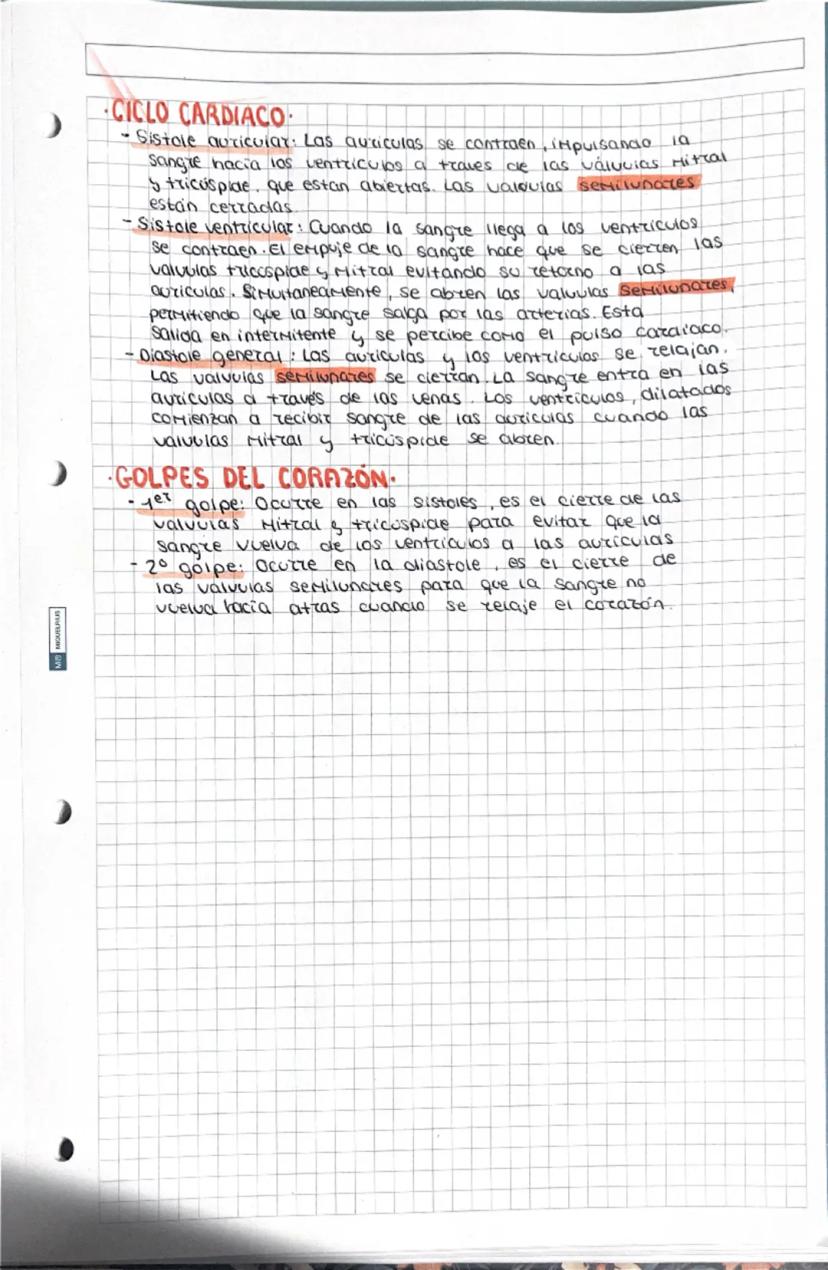 ·CICLO CARDIACO·
- Sistole auricular: Las auriculas se contraen, impulsando la
sangre hacia los ventriculos a traves de las válvulas Mitral
y tricúspide, que estan abiertas. Las valvulas semilunares
están cerradas.
- Sistole ventricular: Cuando la sangre llega a los ventrículos
se contraen. El empuje de la sangre hace que se cierren las
valvulas tricuspide y Mitral evitando su retorno a las
auriculas. Simultaneamente, se abren las valvulas semilunares,
permitiendo que la sangre salga por las arterias. Esta
salida en intermitente y se percibe como el pulso cardiaco.
- Diastole general: Las auriculas y los ventriculos se relajan.
Las valvulas semilunares se cierran. La sangre entra en las
auriculas a través de las venas. Los ventriculos, dilatados
comienzan a recibir sangre de las auriculas cuando las
valvulas Mitral y tricúspide se abren.
·GOLPES DEL CORAZÓN·
- 1er golpe: Ocurre en las sistoles, es el cierre de las
valvulas Mitral y tricuspide para evitar que la
sangre vuelva de los ventriculos a las auriculas
- 2º golpe: Ocurre en la diastole, es el cierre de
las valvulas semilunares para que la sangre no
vuelva hacia atras cuando se relaje el corazón.
MR MIQUELRIUS